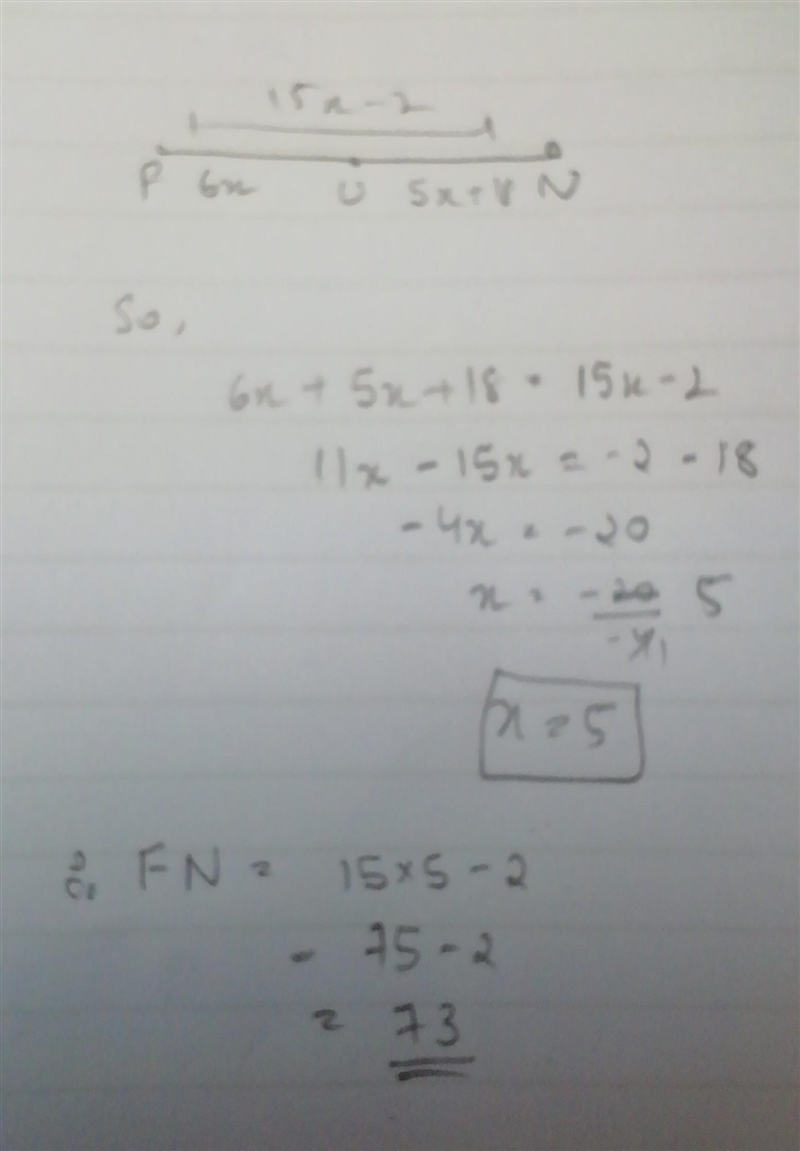 15x-2
F 6x U 5x+18 N
So,
6x + 5x + 18 = 15x - 2
11x - 15x = -2 - 18
-4x = -20
x = -20/-4 5
1
x = 5
∴ FN = 15×5-2
= 75-2
= 73